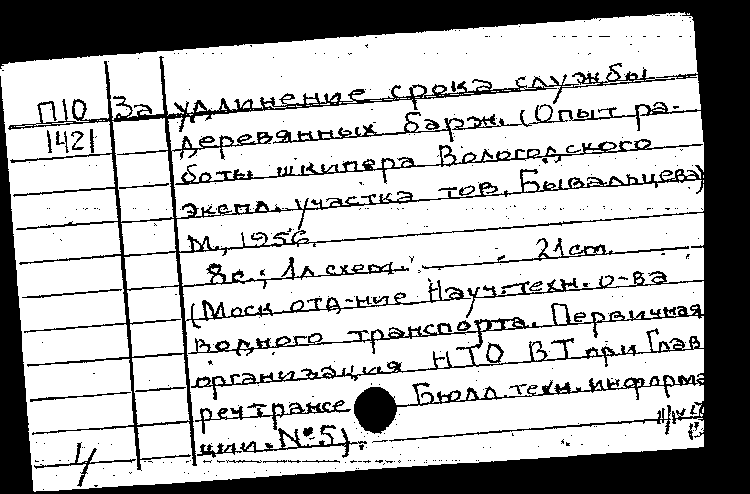 П10 За удлинение срока службы
1421 деревянных барж. (Опыт ра-
боты шкипера Вологодского
экспл. участка тов. Бывальцева)
М., 1956.
8с.; 1л схем. 21 cm.
(Моск отд-ние Науч.-техн. о-ва
водного транспорта. Первичная
организация НТО ВТ при Глав
речтрансе Бюлл. техн. информа
ции. №5).